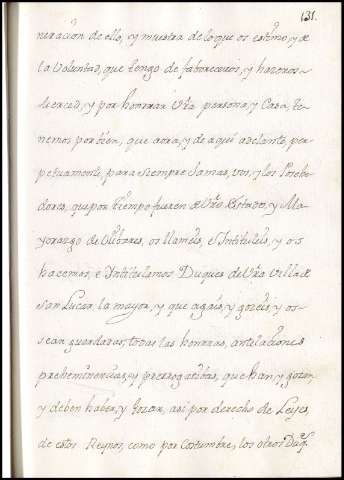 131.
neración de ello, y muestra de lo que os estimo, y de
la Voluntad, que tengo de faboreceros, y haceros
Merced, y por honrrar Vrâ persona, y Casa, te-
nemos por bien, que aora, y de aqui adelante, per-
petuamente, para siempre Jamas, vos, y los Posehe-
dores, que por tiempo fueren de Vrô Estado, y Ma-
yorazgo de Olibares, os llameis, e Intituleis, y os
hacemos, e Yntitulamos Duques de Vrâ Villa de
San Lucar la mayor, y que agais, y gozeis, y os
sean guardadas, todas las honrras, antelaciones
preheminencias, y prerrogatibas, que han, y gozan,
y deben haber, y gozar, asi por derecho de Leyes,
de estos Reynos, como por Costumbre, los otros Duq.s